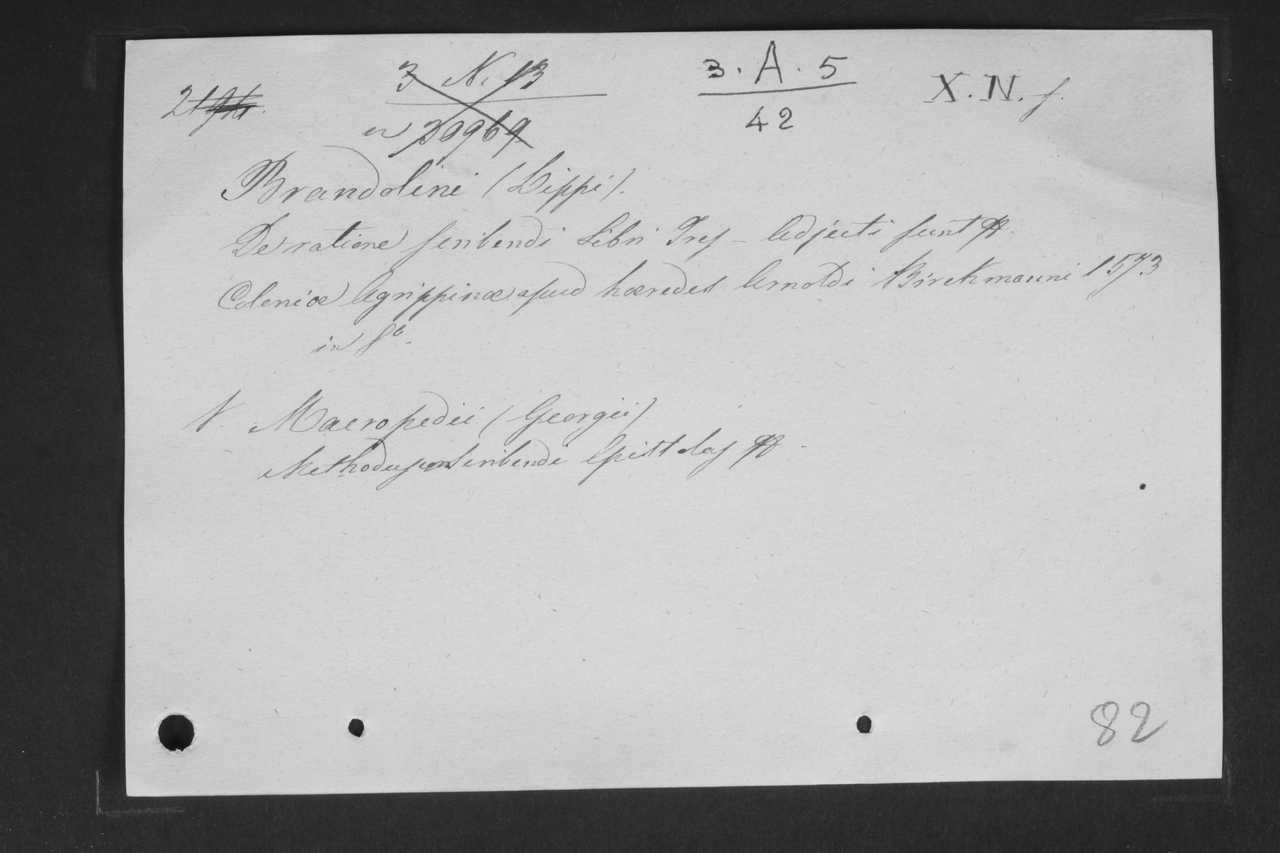 3 N. 13
3. A. 5
X. N. f.
20969
42
Brandolini (Lippi).
De ratione scribendi Libri Tres – Adjecti sunt &.
Coloniæ Agrippinæ apud hæredes Arnoldi Birckmanni 1573
in 8º.
V. Macropedii (Georgii)
Methodus scribendi Epistolas &
82